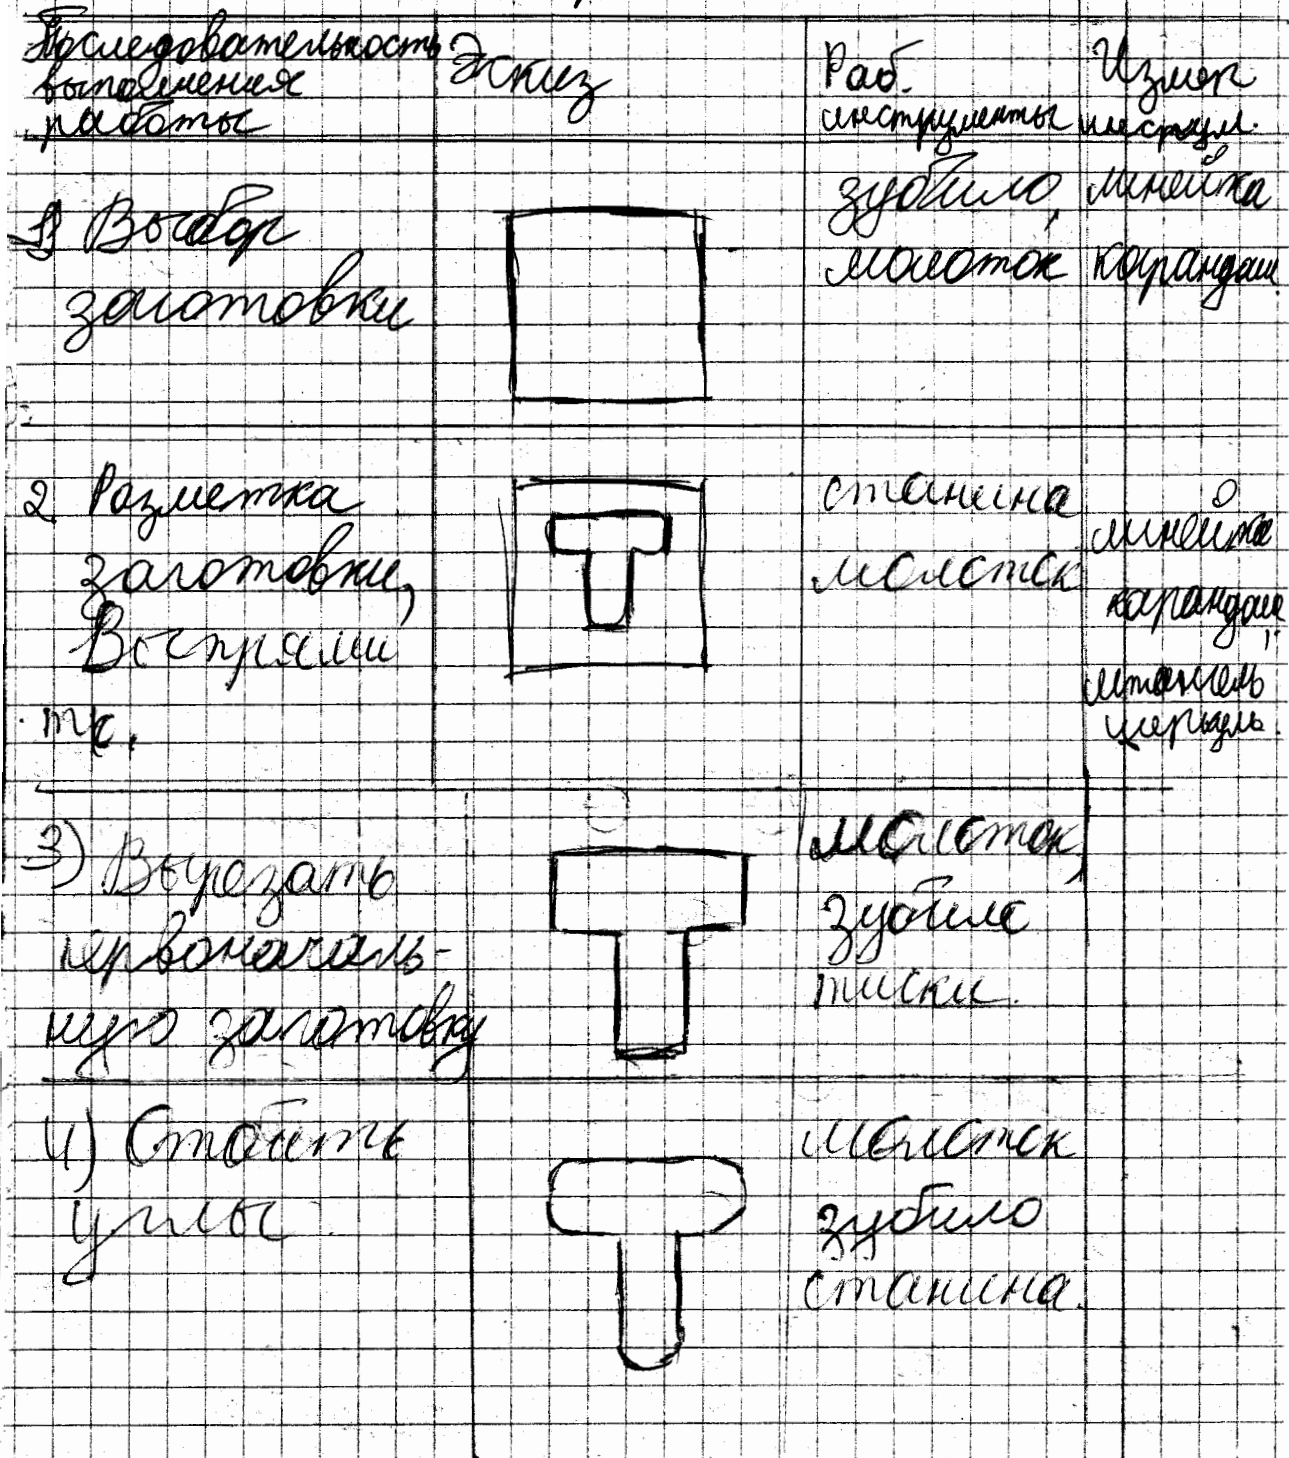 Последовательность
выполнения
работы
Эскиз
Раб.
инструменты
Измер
инструм.
1) Выбор
заготовки
зубило,
молоток
линейка
карандаш.
2 Разметка
заготовки,
Выпрями
ть.
станина
молоток
линейка
карандаш,
штангель
циркуль.
3) Вырезать
первоначаль-
ную заготовку
молоток,
зубило
тиски.
4) Отбить
углы
молоток
зубило
станина.